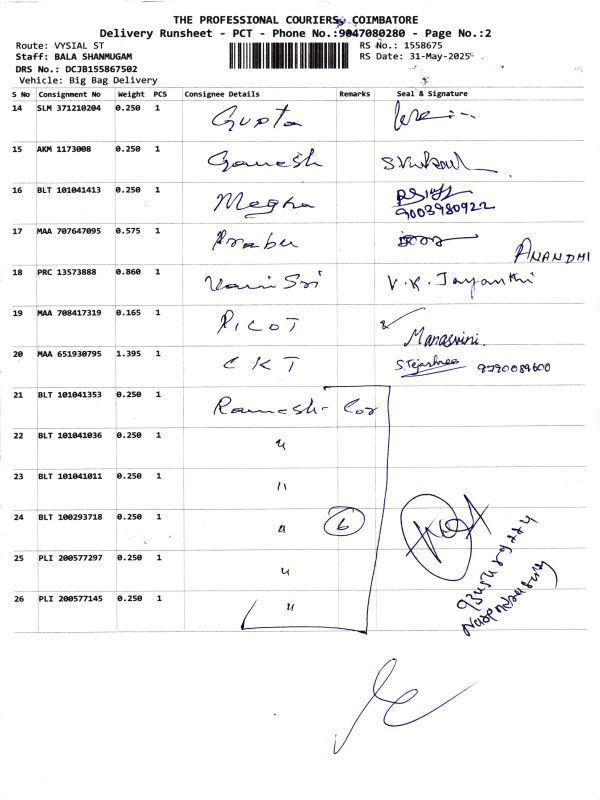 THE PROFESSIONAL COURIERS, COIMBATORE
Delivery Runsheet - PCT - Phone No.:9047080280 - Page No.:2
Route: VYSIAL ST RS No.: 1558675
Staff: BALA SHANMUGAM RS Date: 31-May-2025
DRS No.: DCJB155867502
Vehicle: Big Bag Delivery
S No Consignment No Weight PCS Consignee Details Remarks Seal & Signature
14 SLM 371210204 0.250 1 Gupta
15 AKM 1173008 0.250 1 Ganesh
16 BLT 101041413 0.250 1 Megha
9003980922
17 MAA 707647095 0.575 1 Prabu
ANANDHI
18 PRC 13573888 0.860 1 Vani Sri V.K. Jayanthi
19 MAA 708417319 0.165 1 PICOT Manasvini.
20 MAA 651930795 1.395 1 CKT S.Tejashree 9790089600
21 BLT 101041353 0.250 1 Ramesh- Cor
22 BLT 101041036 0.250 1 "
23 BLT 101041011 0.250 1 "
24 BLT 100293718 0.250 1 " 6
25 PLI 200577297 0.250 1 "
26 PLI 200577145 0.250 1 "